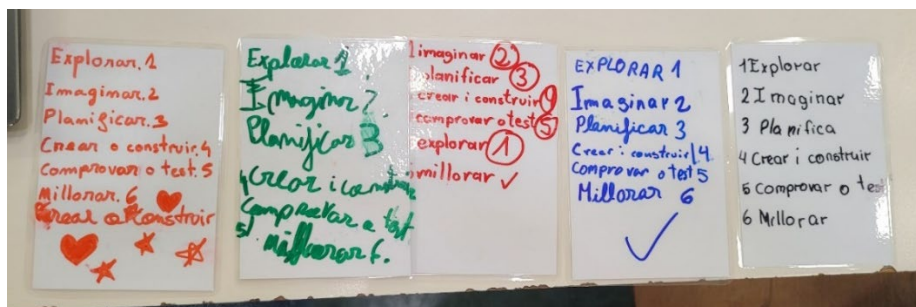 Explorar.1
Imaginar.2
Planificar.3
Crear o construir.4
Comprovar o test.5
Millorar.6
Crear o Construir
Explorar 1.
Imaginar 2
Planificar 3
4 Crear i construir
Comprovar o test
5
Millorar 6.
imaginar 2
planificar 3
crear i construir 4
comprovar o test 5
explorar 1
millorar
EXPLORAR 1
Imaginar 2
Planificar 3
Crear i construir 4
Comprovar o test 5
Millorar 6
1 Explorar
2 Imaginar
3 Planifica
4 Crear i construir
5 Comprovar o test
6 Millorar